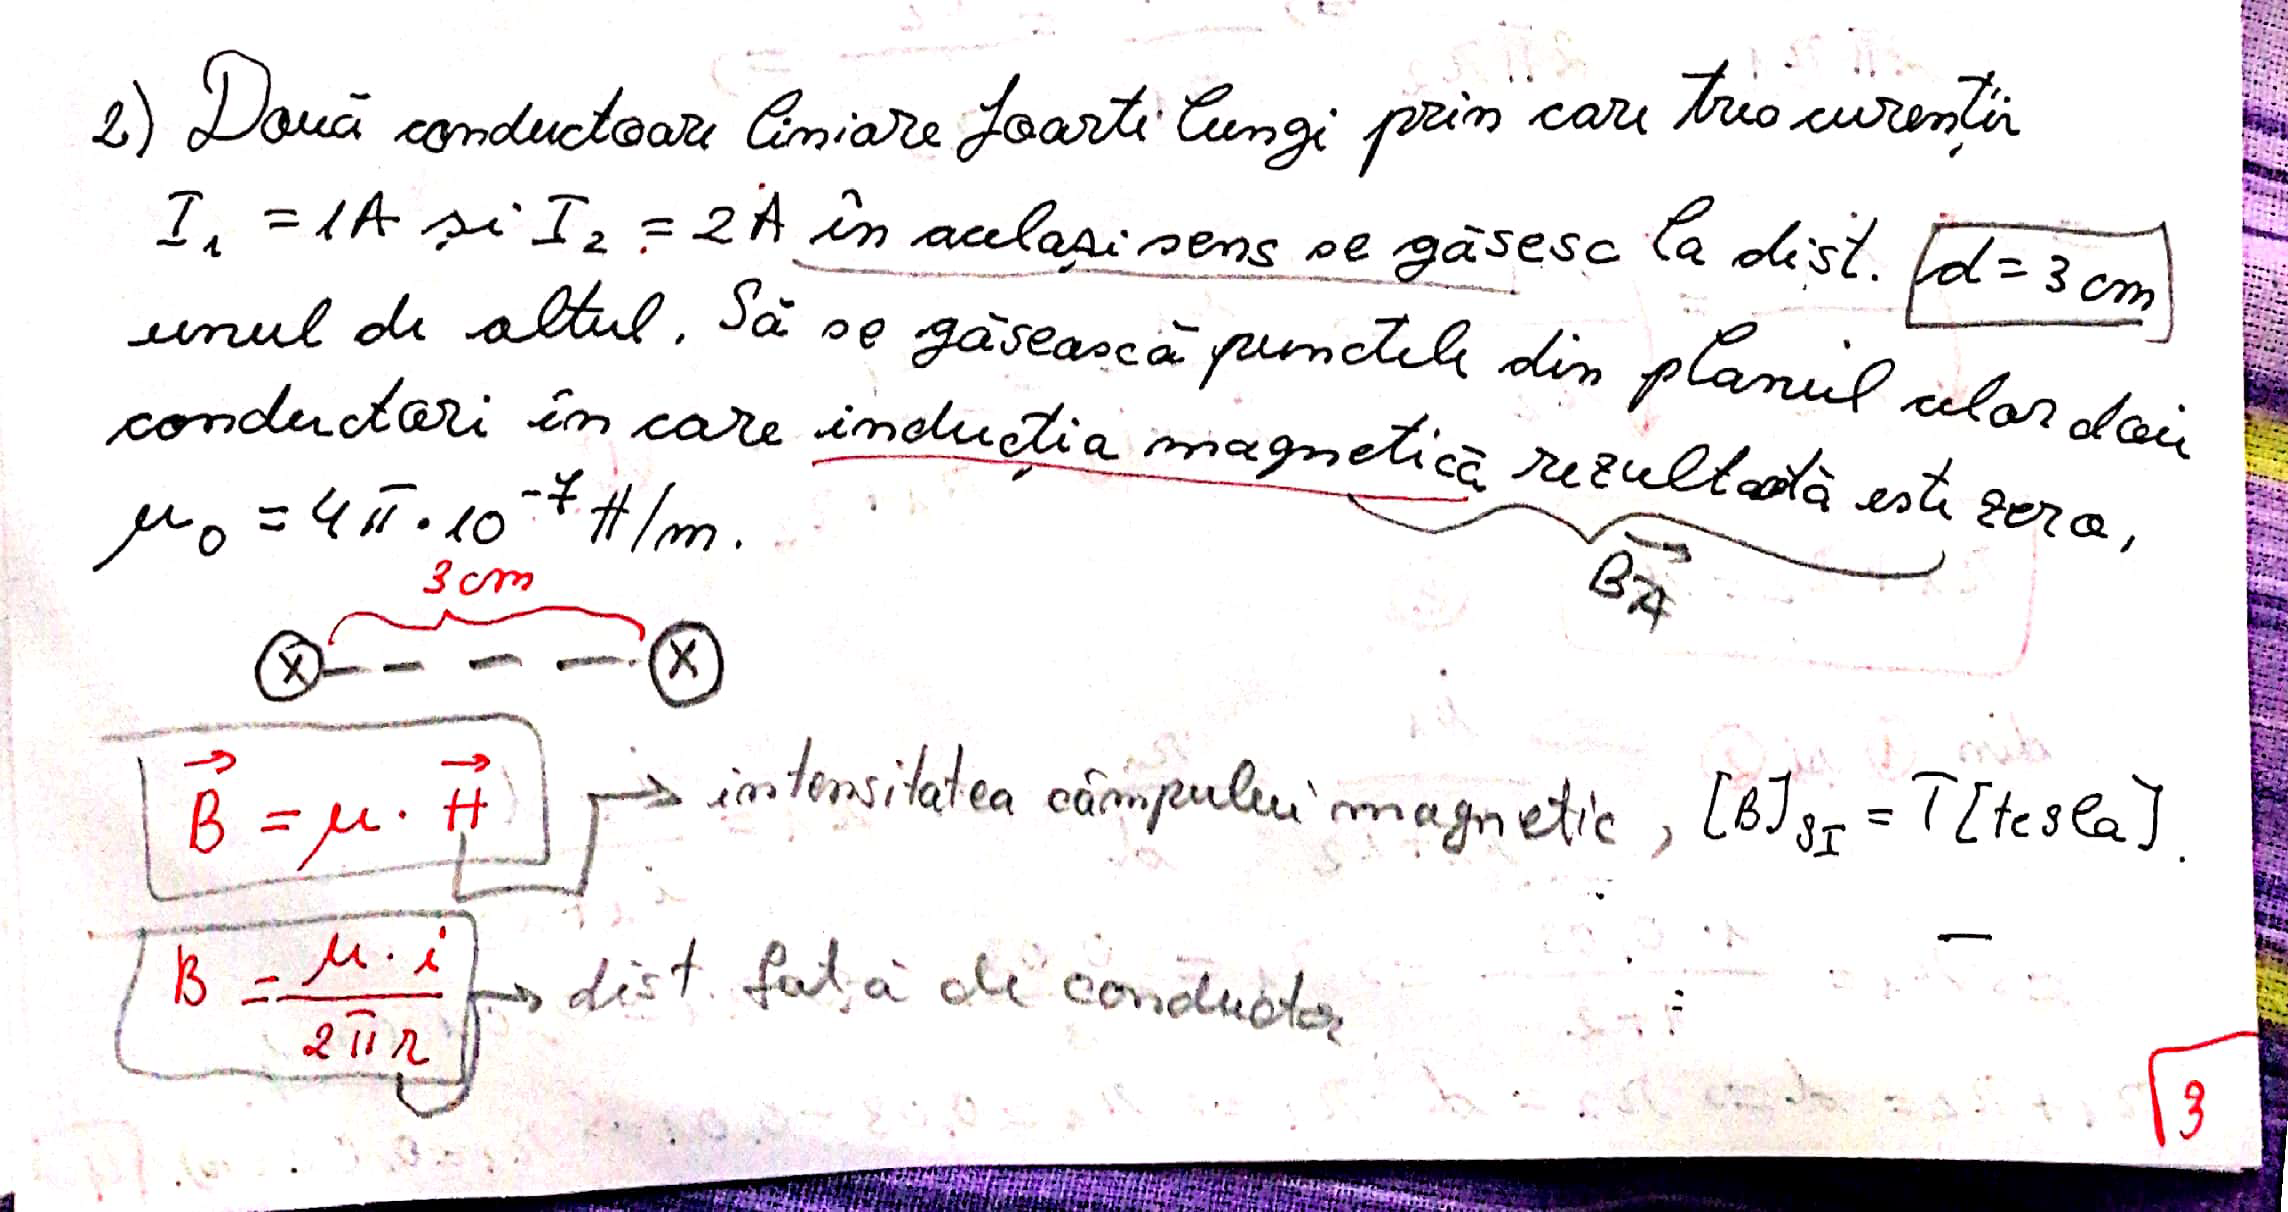 2) Două conductoare liniare foarte lungi prin care trec curenții
I₁ = 1A și I₂ = 2A în același sens se găsesc la dist. d = 3 cm
unul de altul. Să se găsească punctele din planul celor doi
conductori în care inducția magnetică rezultantă este zero,
μ₀ = 4π·10⁻⁷ H/m.
B⃗A
3cm
X X
B⃗ = μ · H⃗ → intensitatea câmpului magnetic, [B]SI = T [tesla].
B = μ · i / 2πr → dist. față de conductor
3